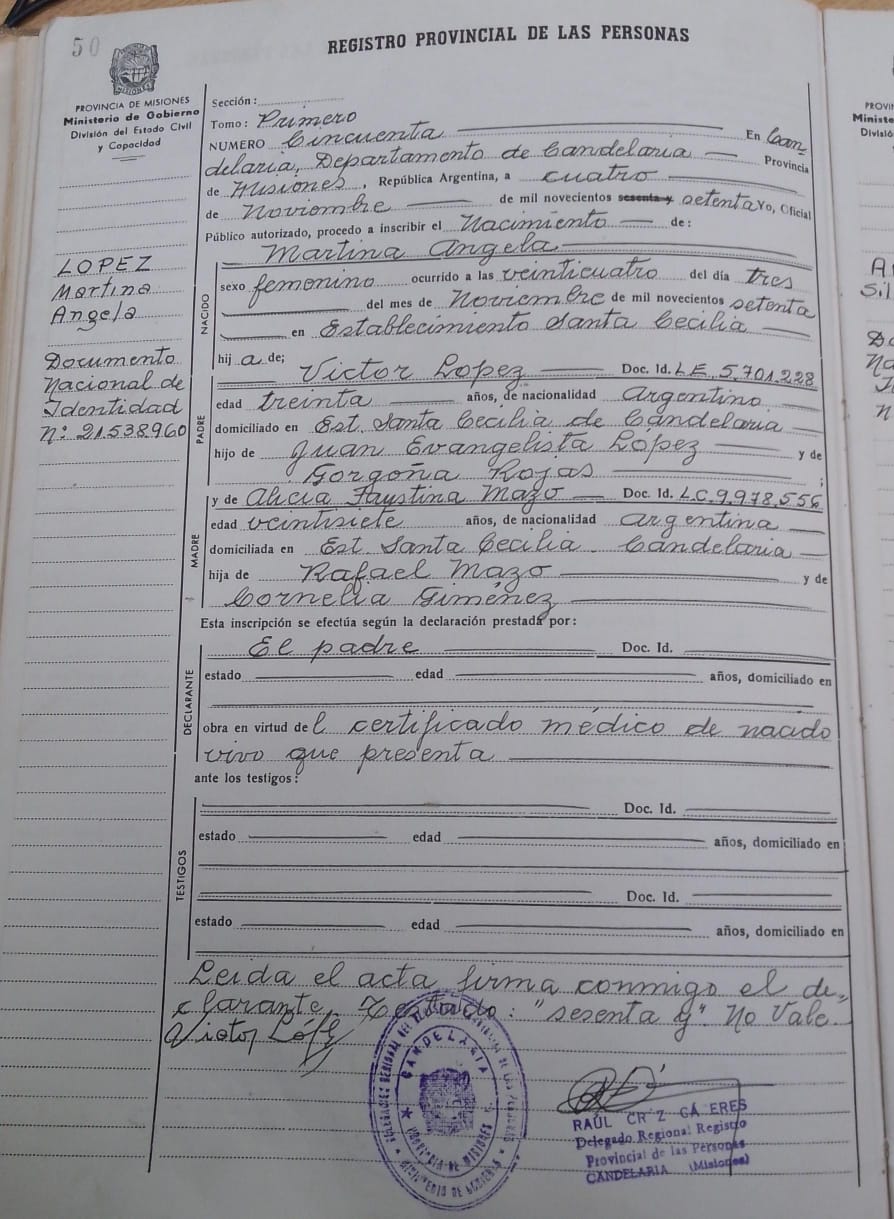 50
REGISTRO PROVINCIAL DE LAS PERSONAS
MISIONES
PROVINCIA DE MISIONES
Ministerio de Gobierno
División del Estado Civil
y Capacidad
Sección:
Tomo: Primero
NUMERO Cincuenta En Can-
delaria, Departamento de Candelaria Provincia
de Misiones, República Argentina, a cuatro
de Noviembre de mil novecientos sesenta y setenta Yo, Oficial
Público autorizado, procedo a inscribir el Nacimiento de:
LOPEZ
Martina
Angela
Documento
Nacional de
Identidad
nº 21.538960
NACIDO
Martina Angela
sexo femenino ocurrido a las veinticuatro del día tres
del mes de Noviembre de mil novecientos setenta
en Establecimiento Santa Cecilia
hij a de;
PADRE
Victor Lopez Doc. Id. L.E. 5.701.228
edad treinta años, de nacionalidad Argentino
domiciliado en Est. Santa Cecilia de Candelaria
hijo de Juan Evangelista López y de
Gorgoña Rojas ;
MADRE
y de Alicia Faustina Mazo Doc. Id. L.C. 9.978.556
edad veintisiete años, de nacionalidad argentina
domiciliada en Est Santa Cecilia Candelaria
hija de Rafael Mazo y de
Cornelia Gimenez
Esta inscripción se efectúa según la declaración prestada por:
DECLARANTE
El padre Doc. Id.
estado edad años, domiciliado en
obra en virtud de l certificado médico de nacido
vivo que presenta
ante los testigos:
TESTIGOS
Doc. Id.
estado edad años, domiciliado en
Doc. Id.
estado edad años, domiciliado en
Leida el acta firma conmigo el de-
clarante, Testado: "sesenta y" no Vale.
Victor López
CANDELARIA
PROVINCIA DE MISIONES
MINISTERIO DE GOBIERNO
RAÚL CR Z CÁ ERES
Delegado Regional Registro
Provincial de las Personas
CANDELARIA (Misiones)
PROVI
Ministe
Divisió